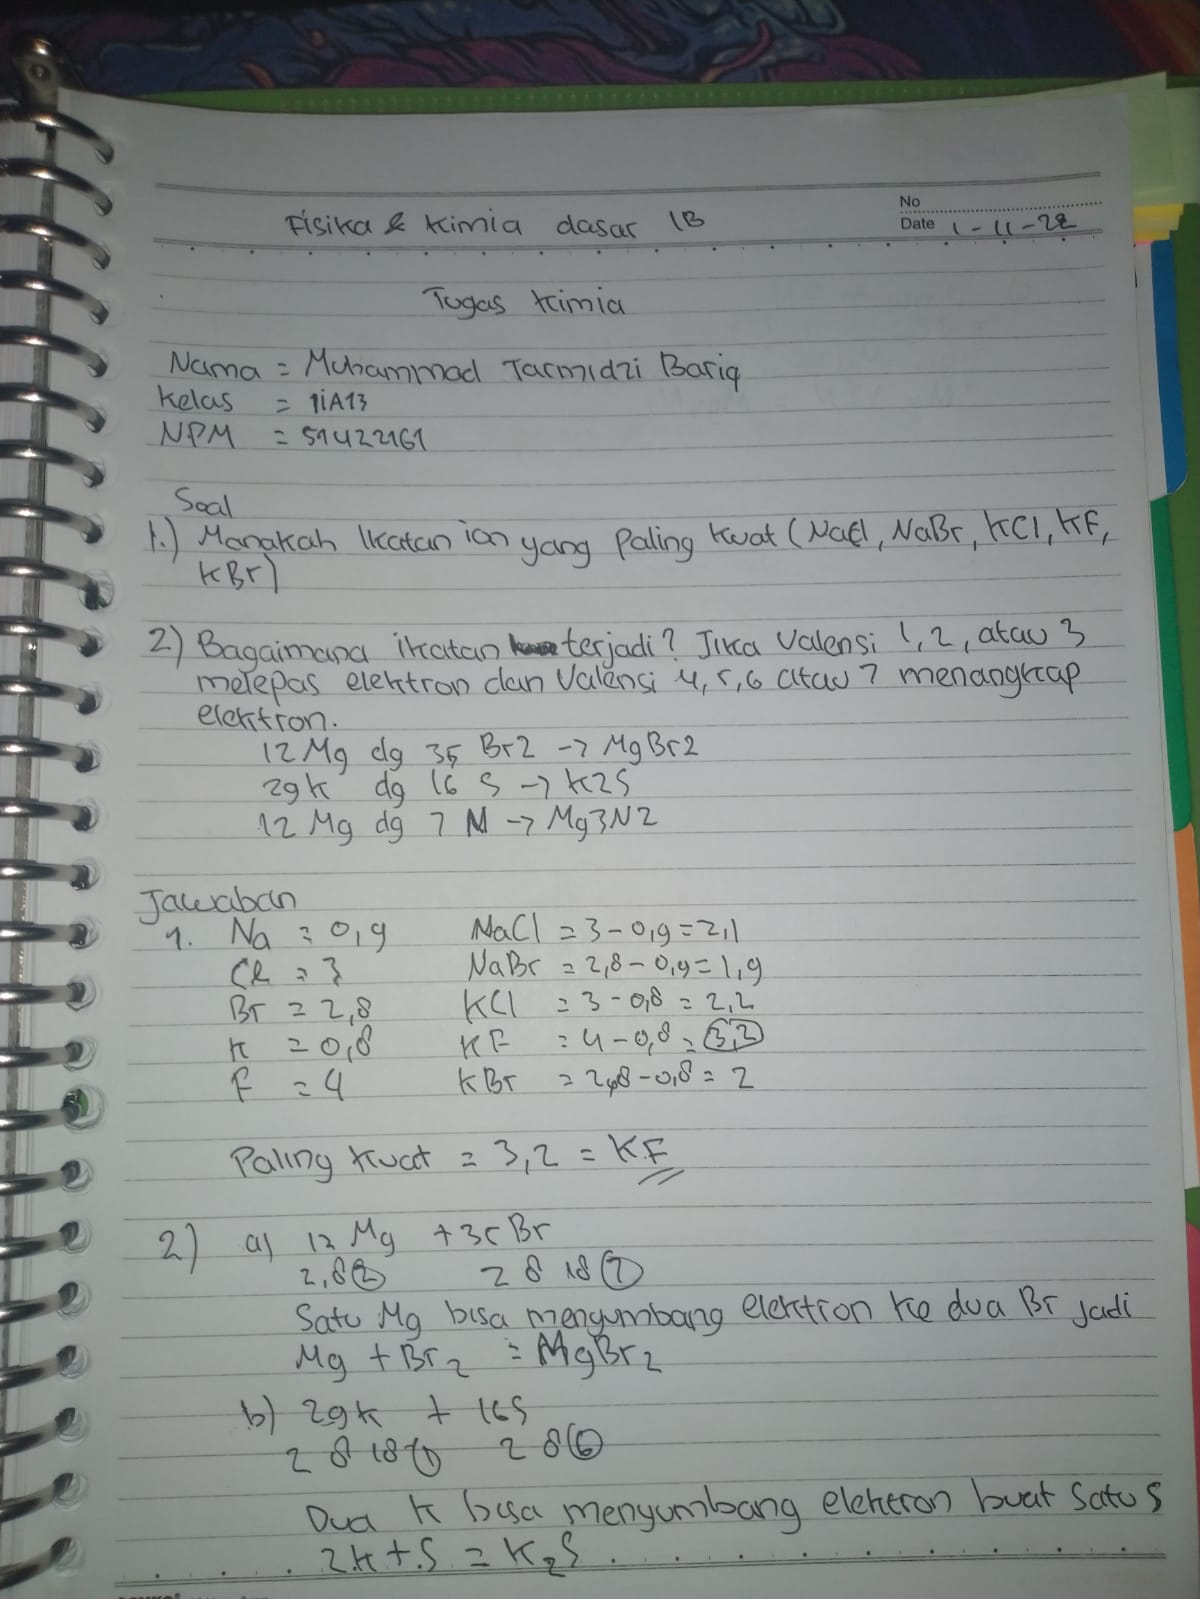 No
Fisika & Kimia dasar 1B
Date 1-11-22
Tugas Kimia
Nama = Muhammad Tarmidzi Bariq
Kelas = 1iA13
NPM = 51422161
Soal
1.) Manakah Ikatan ion yang Paling Kuat (NaCl, NaBr, KCl, KF,
KBr)
2) Bagaimana ikatan terjadi? Jika Valensi 1, 2, atau 3
melepas elektron dan Valensi 4, 5, 6 atau 7 menangkap
elektron.
12 Mg dg 35 Br2 -> MgBr2
29K dg 16 S -> K2S
12 Mg dg 7 N -> Mg3N2
Jawaban
1. Na = 0,9 NaCl = 3-0,9=2,1
Cl = 3 NaBr = 2,8-0,9=1,9
Br = 2,8 KCl = 3-0,8 = 2,2
K = 0,8 KF = 4-0,8 = 3,2
F = 4 KBr = 2,8-0,8 = 2
Paling Kuat = 3,2 = KF
2) a) 12 Mg + 35 Br
2,8 2 2 8 18 7
Satu Mg bisa menyumbang elektron ke dua Br jadi
Mg + Br2 = MgBr2
b) 29K + 16S
2 8 18 1 2 8 6
Dua K bisa menyumbang elektron buat Satu S
2K+S = K2S